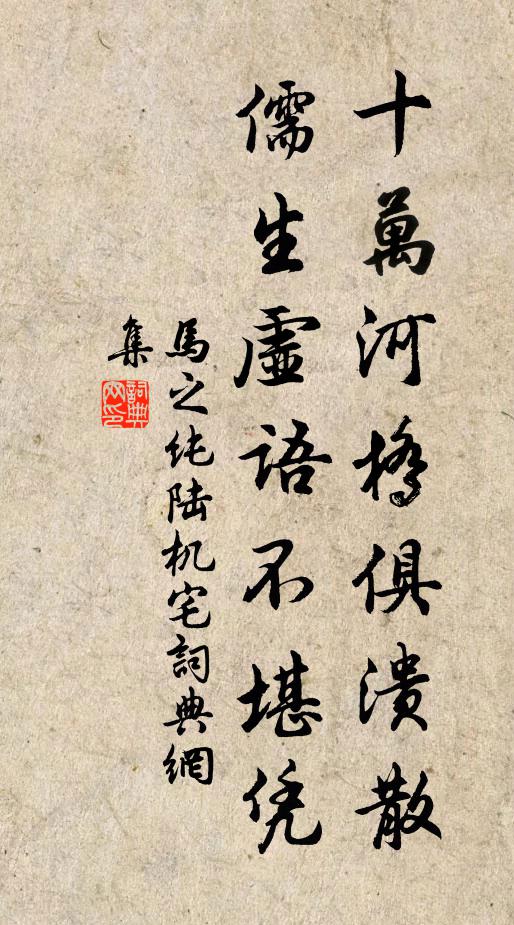 十萬河橋俱潰散
儒生虛語不堪凭
馬之纯陆机宅詞典網
集
詞典
网印